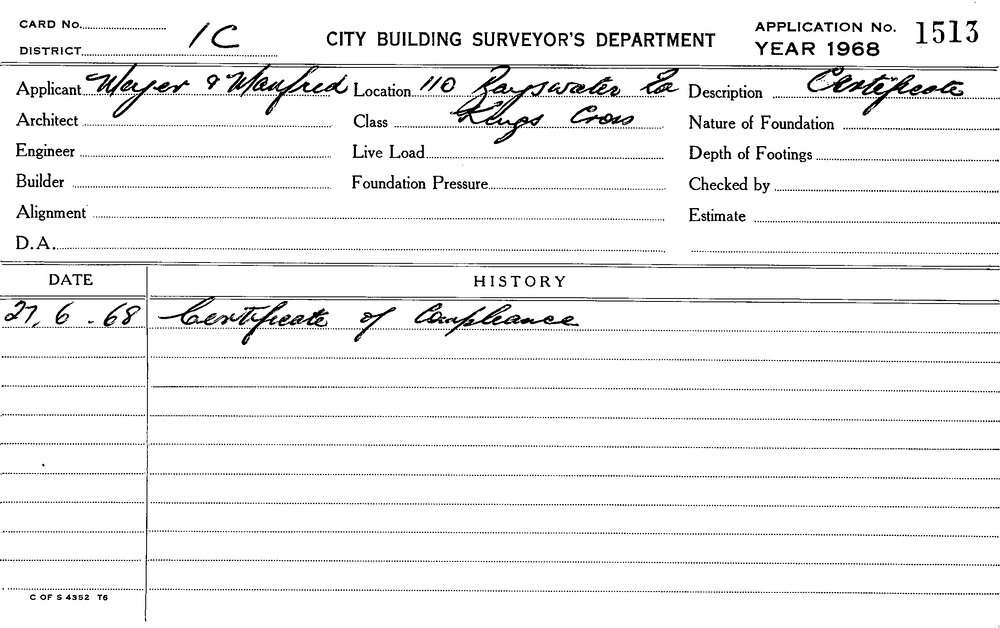 CARD No.
DISTRICT 1C
CITY BUILDING SURVEYOR'S DEPARTMENT
APPLICATION No. 1513
YEAR 1968
Applicant Mayer & Manfred Location 110 Bayswater Rd Description Certificate
Architect Class Kings Cross Nature of Foundation
Engineer Live Load Depth of Footings
Builder Foundation Pressure Checked by
Alignment Estimate
D.A.
DATE HISTORY
27.6.68 Certificate of Compliance
C OF S 4352 T6